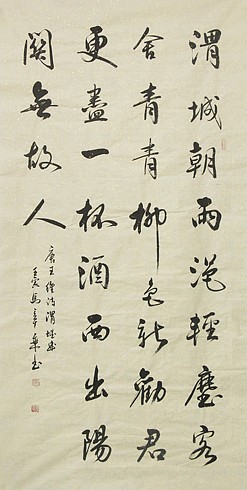 渭城朝雨浥輕塵客
舍青青柳色新勸君
更盡一杯酒西出陽
關無故人
唐王維詩渭城曲